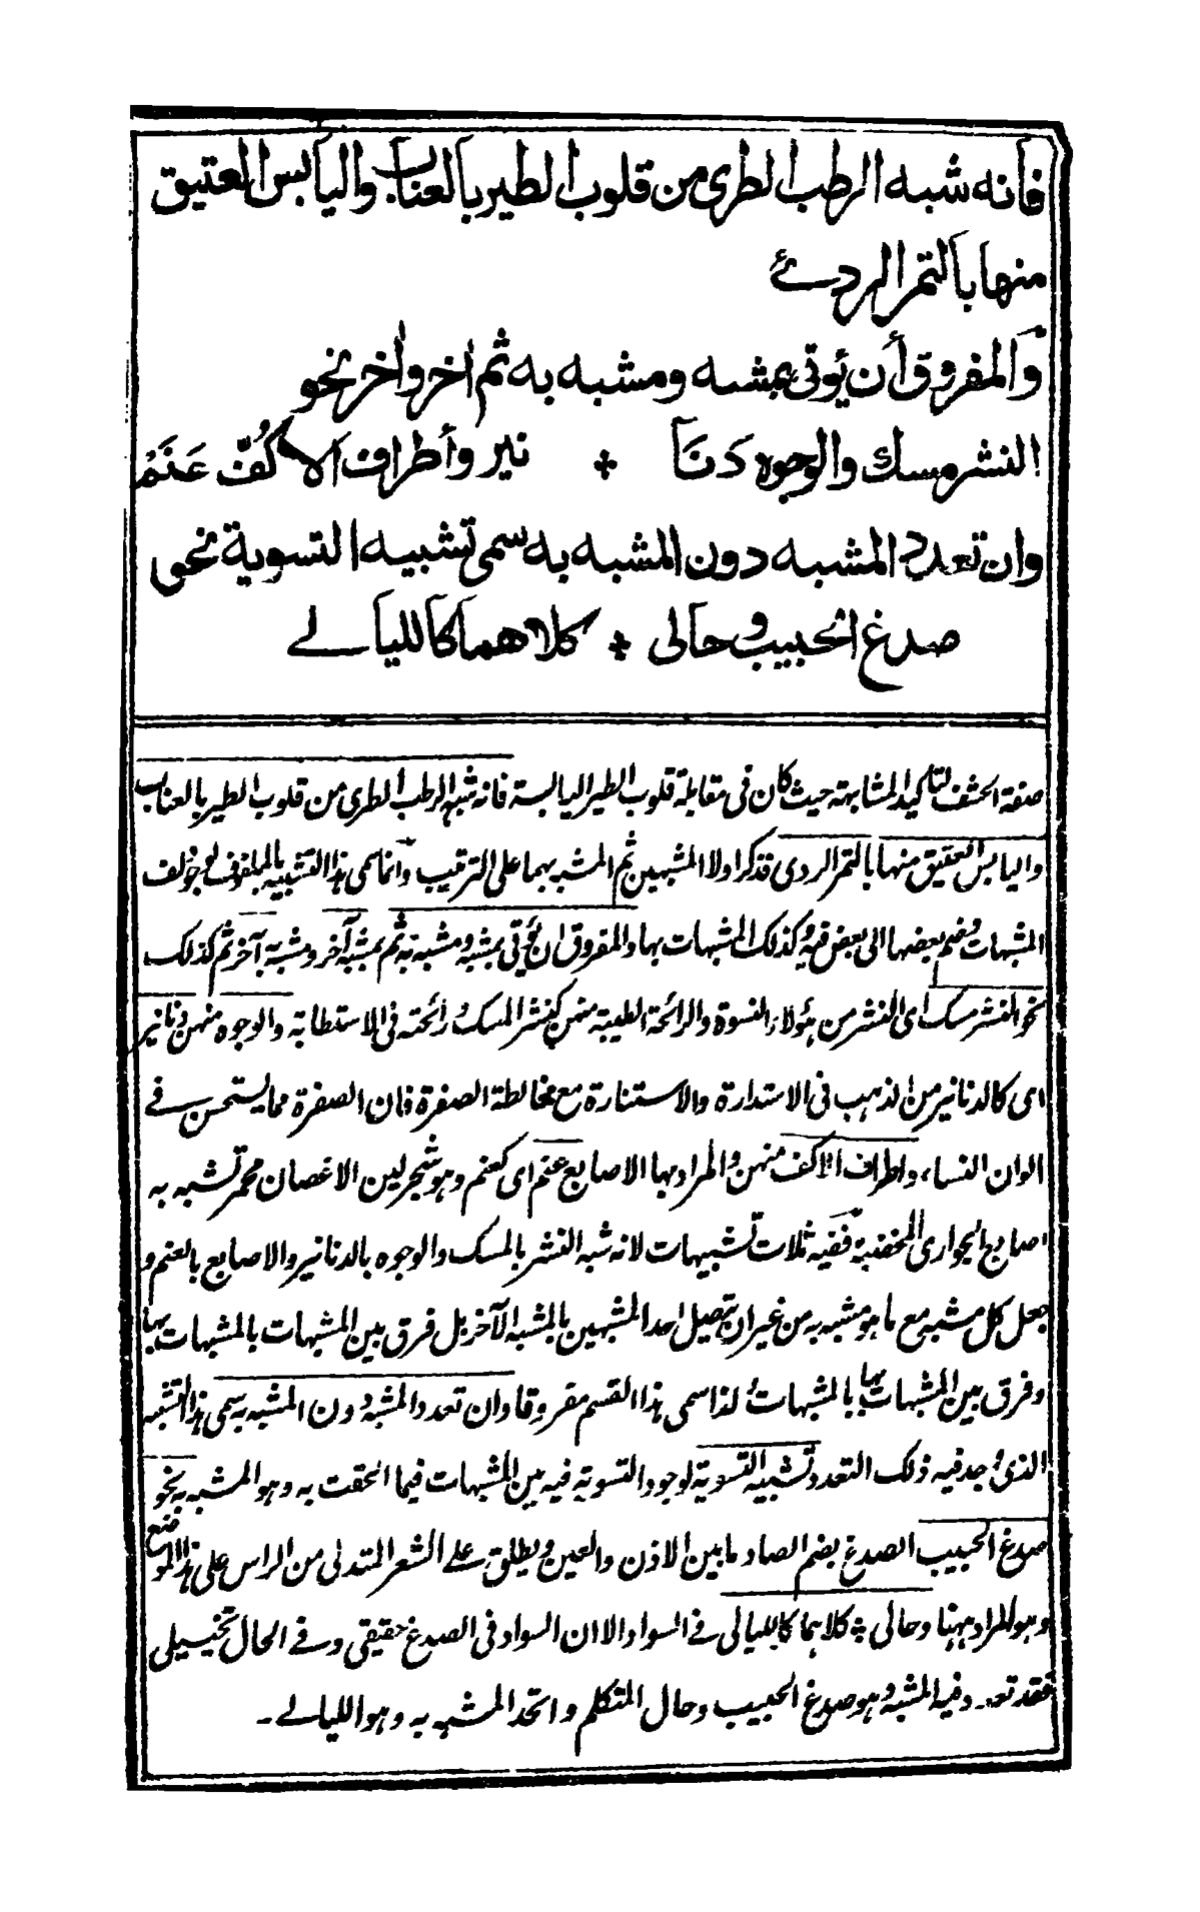 فانه شبه الرطب الطرى من قلوب الطير بالعناب واليابس العتيق
منها بالتمر الردئ
والمفروق أن يؤتى بمشبه ومشبه به ثم اٰخر واٰخر نحو
النشر مسك والوجوه دَنَا + نير وأطراف الاكُفّ عَنَمُ
وان تعدد المشبه دون المشبه به سمى تشبيه التسوية نحو
صدغ الحبيب وحالى + كلاهما كالليالے
صفة الحشف لتاكيد المشابهة حيث كان فى مقابلة قلوب الطير اليابسة فانه شبه الرطب الطرى من قلوب الطير بالعناب
واليابس العتيق منها بالتمر الردى فذكر اولا المشبهين ثم المشبه بهما على الترتيب وانما سمى هذا التشبيه بالملفوف لوجود لف
المشبهات وضم بعضها الى بعض فيه وكذلك المشبهات بها والمفروق ان يؤتى بمشبه ومشبه به ثم بمشبه آخر ومشبه به آخر ثم كذلك
نحو النشر مسك اى النشر من هؤلاء النسوة والرائحة الطيبة منهن كنشر المسك ورائحته فى الاستطابة والوجوه منهن دنانير
اى كالدنانير من الذهب فى الاستدارة والاستنارة مع مخالطة الصفرة فان الصفرة مما يستحسن فے
الوان النساء واطراف الاكف منهن والمراد بها الاصابع عنم اى كعنم وهو شجر لين الاغصان محمر تشبه به
اصابع الجوارى المخضبة ففيه ثلاث تشبيهات لانه شبه النشر بالمسك والوجوه بالدنانير والاصابع بالعنم و
جعل كل مشبه مع ما هو مشبه به من غير ان يتصل احد المشبهين بالمشبه الآخر بل فرق بين المشبهات بالمشبهات بها
وفرق بين المشبهات بها بالمشبهات ولذا سمى هذا القسم مفروقا وان تعدد المشبه دون المشبه به سمى هذا التشبيه
الذى وجد فيه ذلك التعدد تشبيه التسوية لوجود التسوية فيه بين المشبهات فيما الحقت به وهو المشبه به نحو
صدغ الحبيب الصدغ بضم الصاد ما بين الاذن والعين ويطلق علے الشعر المتدلى من الراس على هذا الموضع
وهو المراد ههنا وحالى + كلاهما كالليالى فے السواد الا ان السواد فى الصدغ حقيقى وفے الحال تخييلى
فقد تعدد فيه المشبه وهو صدغ الحبيب وحال المتكلم واتحد المشبه به وهو الليالے -